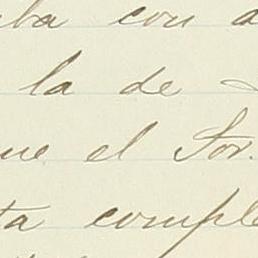 ba con a
la de
ue el Sor.
ta comple